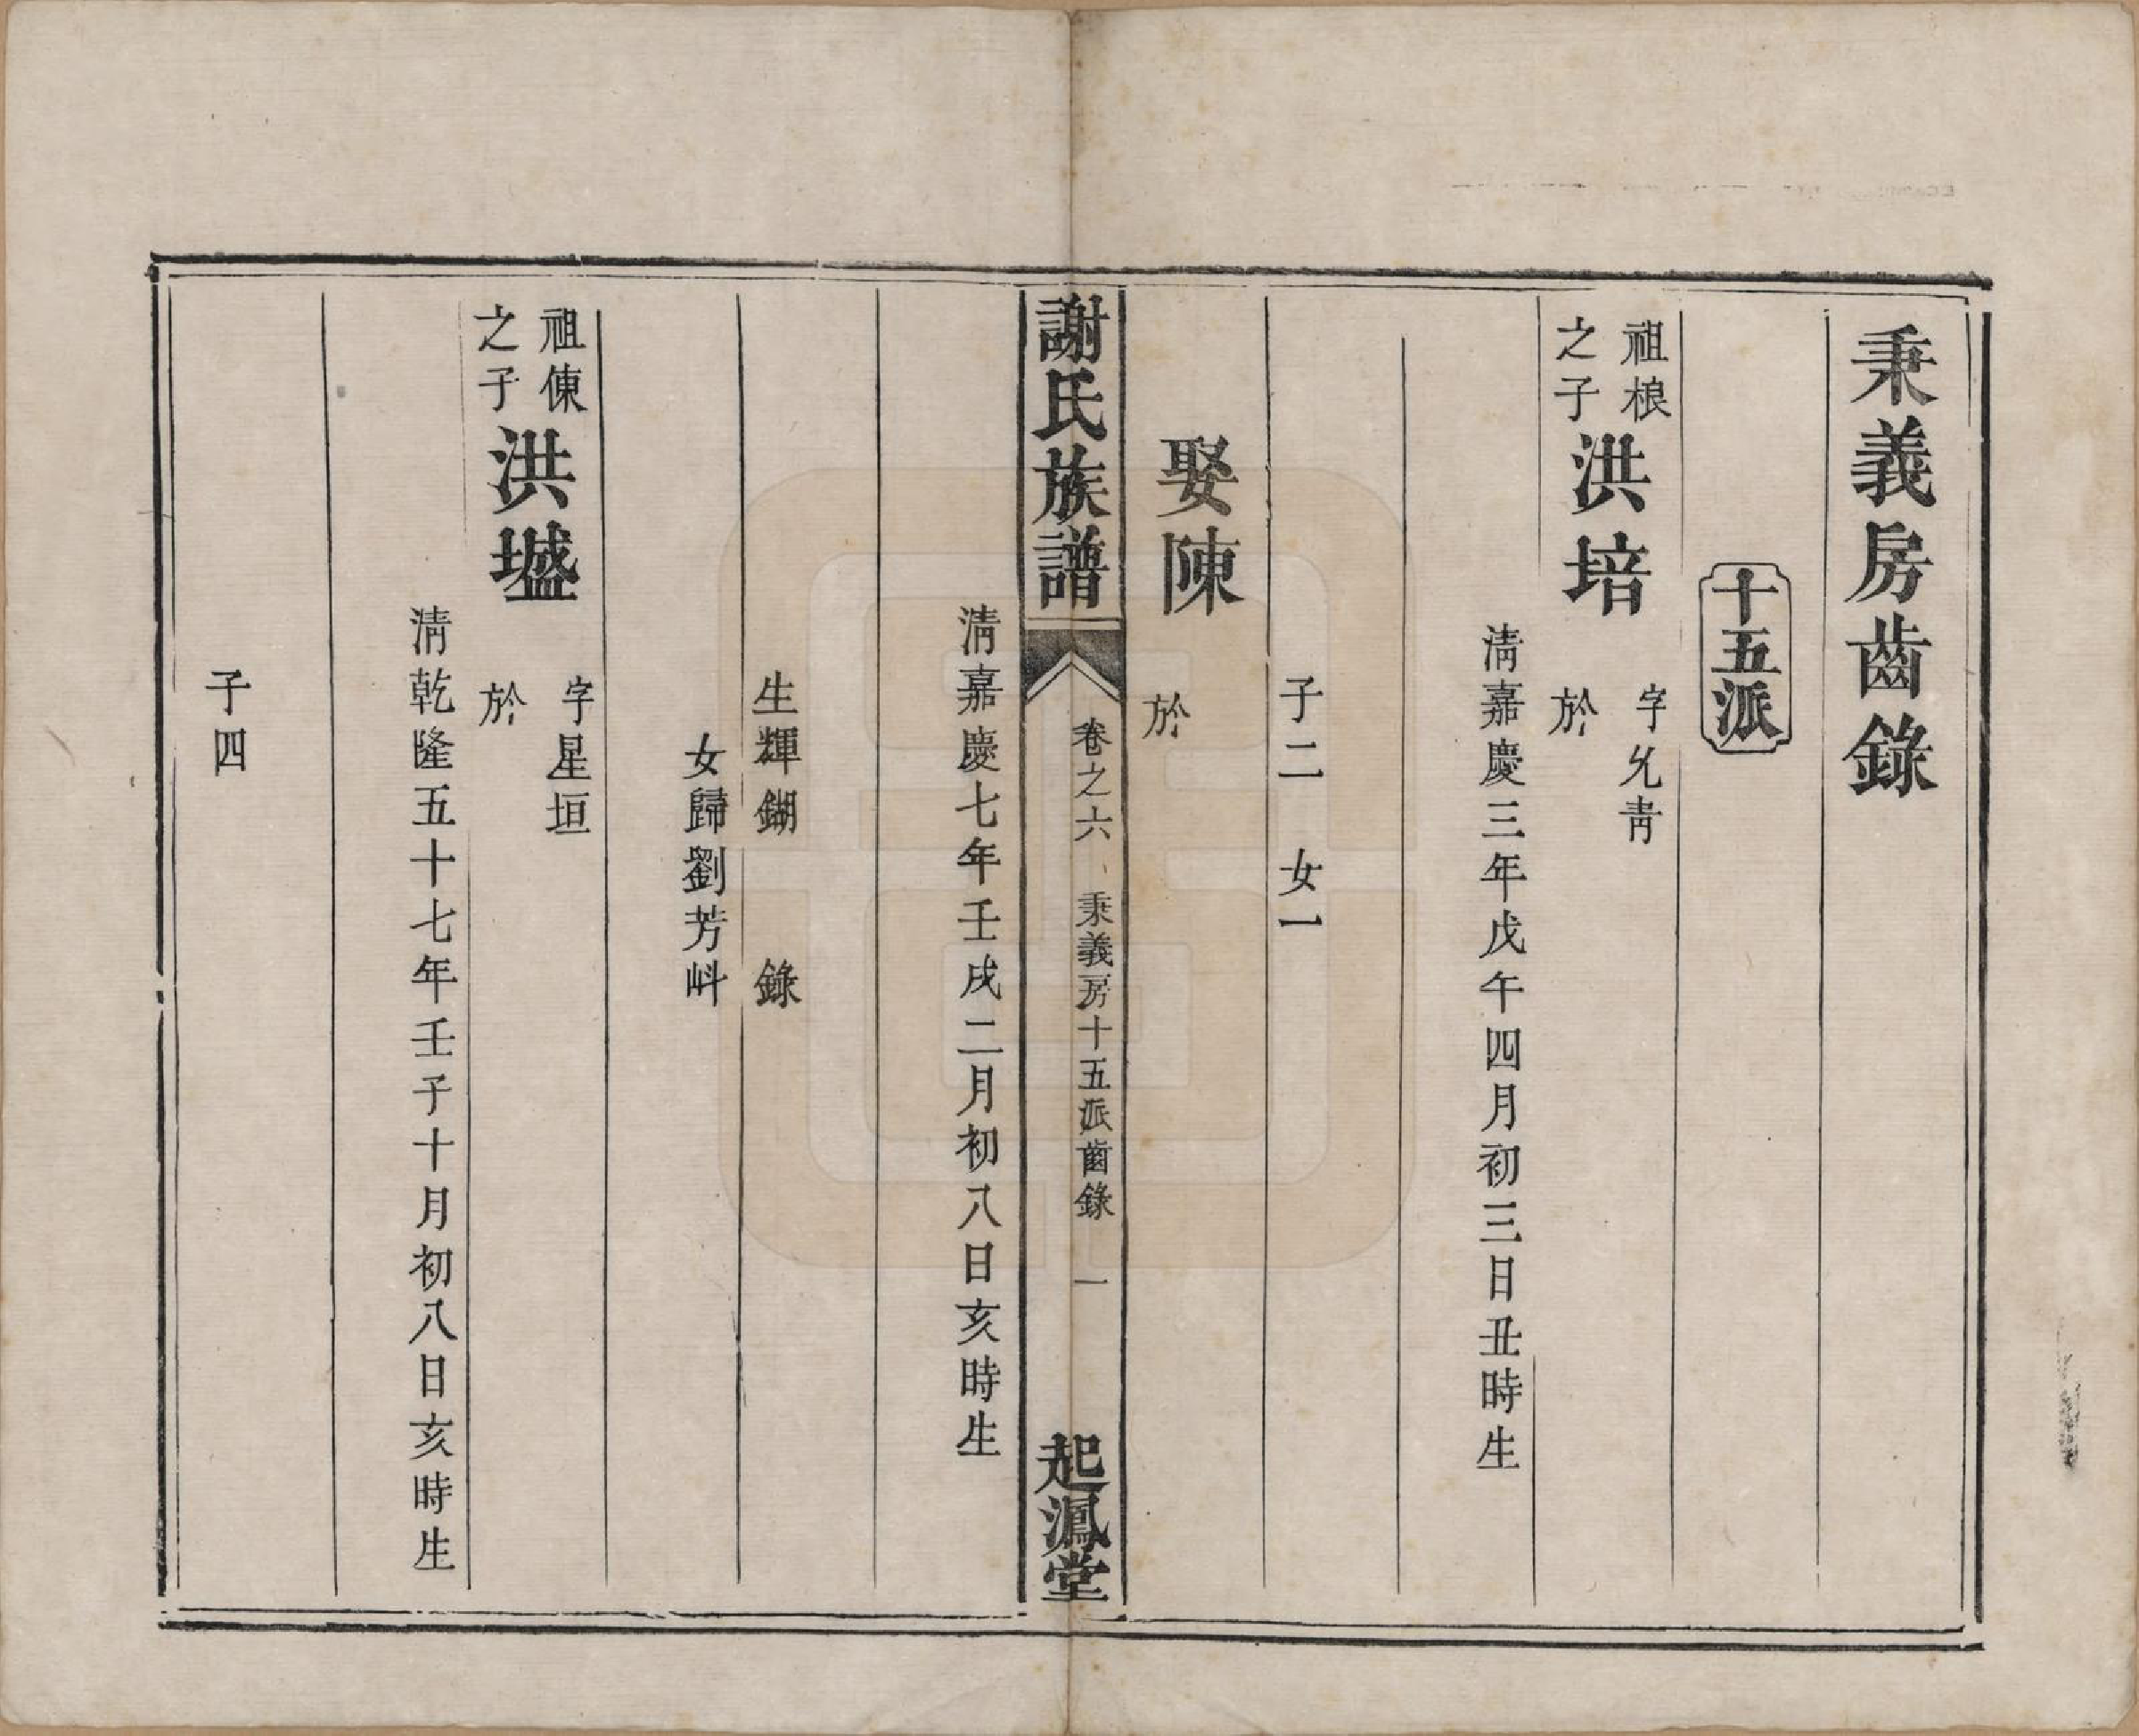 秉義房齒錄
十五派
祖桹
之子
洪培
字允靑
於
淸嘉慶三年戊午四月初三日丑時生
子二　女一
娶陳
於
謝氏族譜
卷之六　秉義房十五派齒錄　一
起鳳堂
淸嘉慶七年壬戌二月初八日亥時生
生輝鍸　錄
女歸劉芳㪷
祖㑛
之子
洪壏
字星垣
於
淸乾隆五十七年壬子十月初八日亥時生
子四